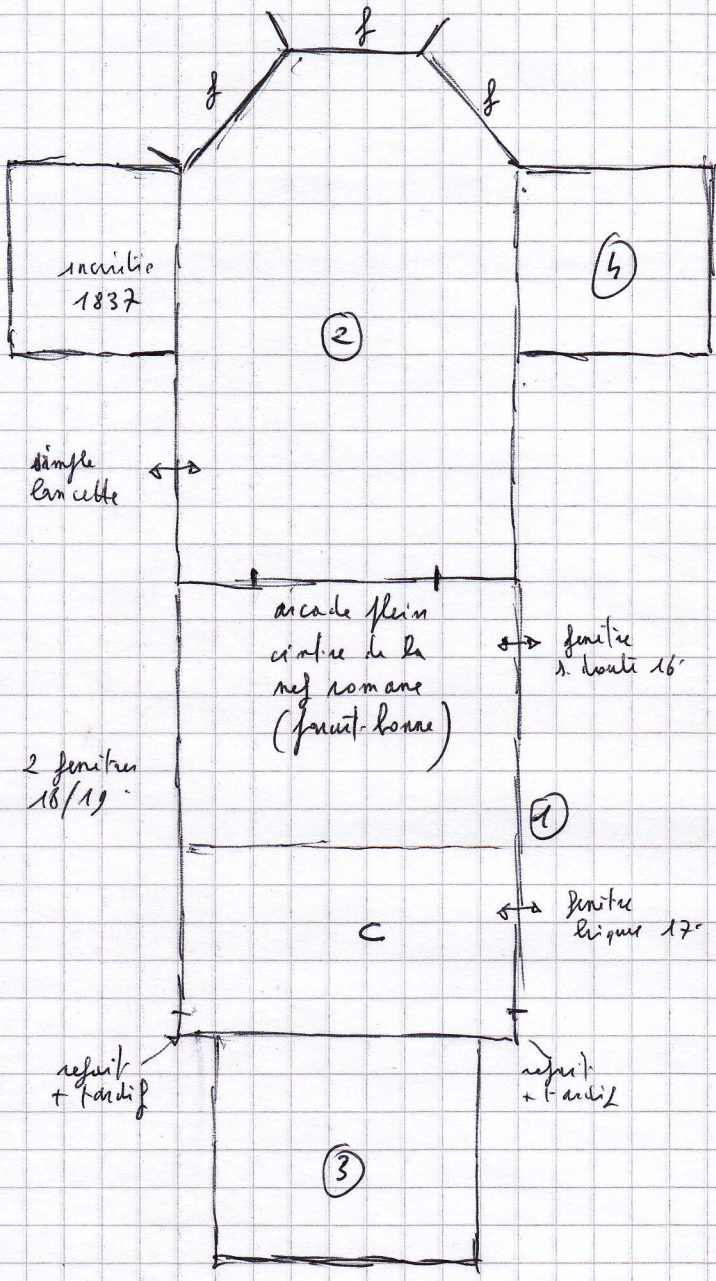 f
f
f
sacristie
1837
4
2
simple
lancette
arcade plein
cintre de la
nef romane
(faut-bonne)
fenêtre
s. doute 16
2 fenêtres
18/19
1
C
fenêtre
brique 17
refait
+ tardif
refait
+ tardif
3